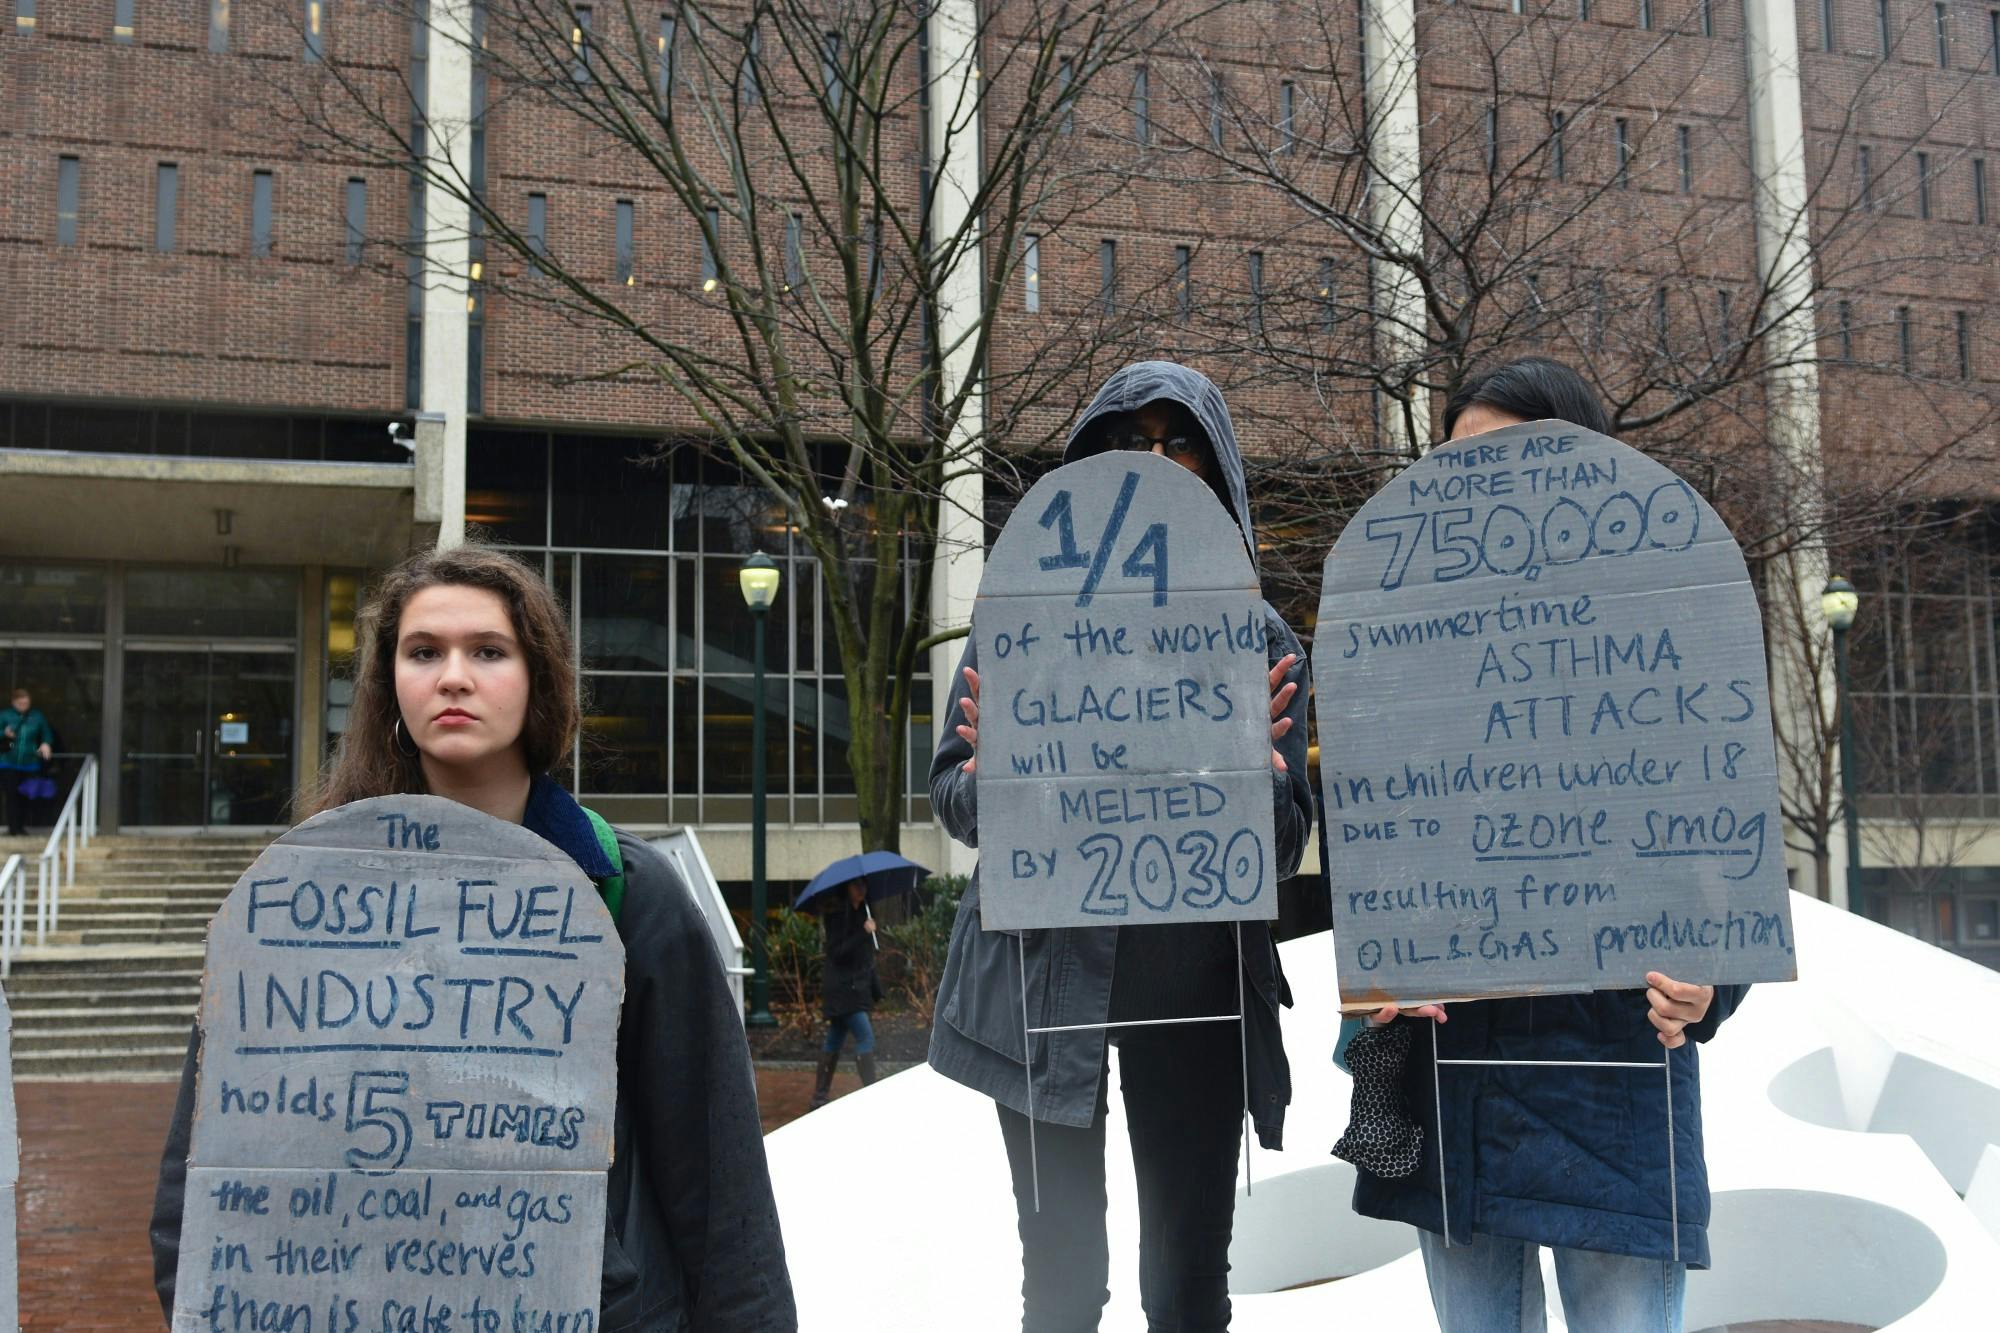 The
FOSSIL FUEL
INDUSTRY
holds 5 TIMES
the oil, coal, and gas
in their reserves
than is safe to burn
1/4
of the world's
GLACIERS
will be
MELTED
BY 2030
THERE ARE
MORE THAN
750,000
summertime
ASTHMA
ATTACKS
in children under 18
DUE TO ozone smog
resulting from
OIL & GAS production.